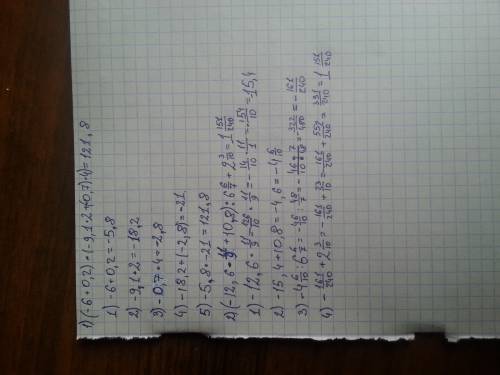 1) (-6+0,2)*(-9,1*2+(-0,7)*4)=121,8
1) -6+0,2=-5,8
2) -9,1*2=-18,2
3) -0,7*4=-2,8
4) -18,2+(-2,8)=-21
5) -5,8*-21=121,8
2) (-12,6*11/9+10,8):6 6/7+2 3/10=1 151/240
1) -12,6*11/9=-126/10*11/9=-14/10*11/1=-154/10=15,4
2) -15,4+10,8=-4,6=-4 6/10
3) -4 6/10:6 6/7=-46/10:48/7=-46*7/10*48=-322/480=-161/240
4) -161/240+2 3/10=-161/240+23/10=-161/240+552/240=391/240=1 151/240